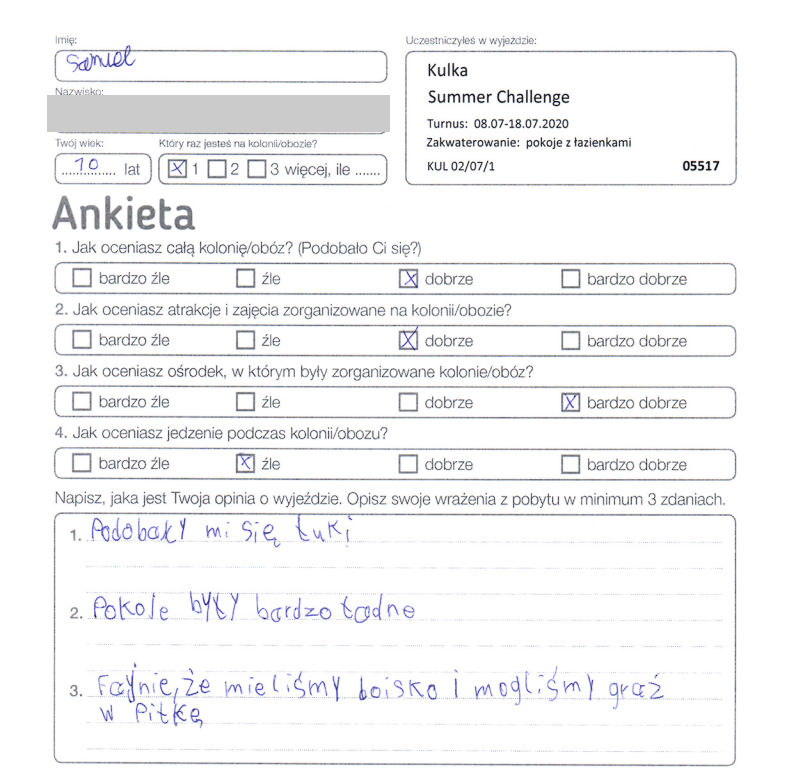 Imię:
Samuel
Nazwisko:
Twój wiek:
10 lat
Który raz jesteś na kolonii/obozie?
X 1 2 3 więcej, ile .......
Uczestniczyłeś w wyjeździe:
Kulka
Summer Challenge
Turnus: 08.07-18.07.2020
Zakwaterowanie: pokoje z łazienkami
KUL 02/07/1 05517
Ankieta
1. Jak oceniasz całą kolonię/obóz? (Podobało Ci się?)
bardzo źle źle X dobrze bardzo dobrze
2. Jak oceniasz atrakcje i zajęcia zorganizowane na kolonii/obozie?
bardzo źle źle X dobrze bardzo dobrze
3. Jak oceniasz ośrodek, w którym były zorganizowane kolonie/obóz?
bardzo źle źle dobrze X bardzo dobrze
4. Jak oceniasz jedzenie podczas kolonii/obozu?
bardzo źle X źle dobrze bardzo dobrze
Napisz, jaka jest Twoja opinia o wyjeździe. Opisz swoje wrażenia z pobytu w minimum 3 zdaniach.
1. Podobały mi się łuki
2. Pokoje były bardzo ładne
3. Fajnie, że mieliśmy boisko i mogliśmy grać
w Piłkę